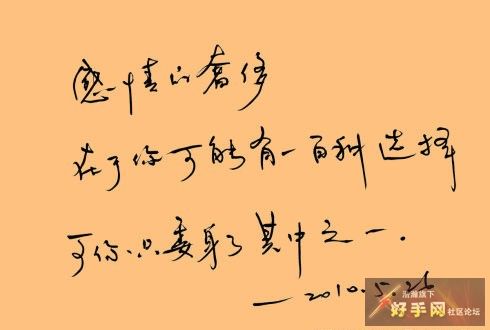 感情的奢侈
在于你可能有一百种选择
可你只委身了其中之一.
—2010.5.26
浩瀚旗下
好手网社区论坛